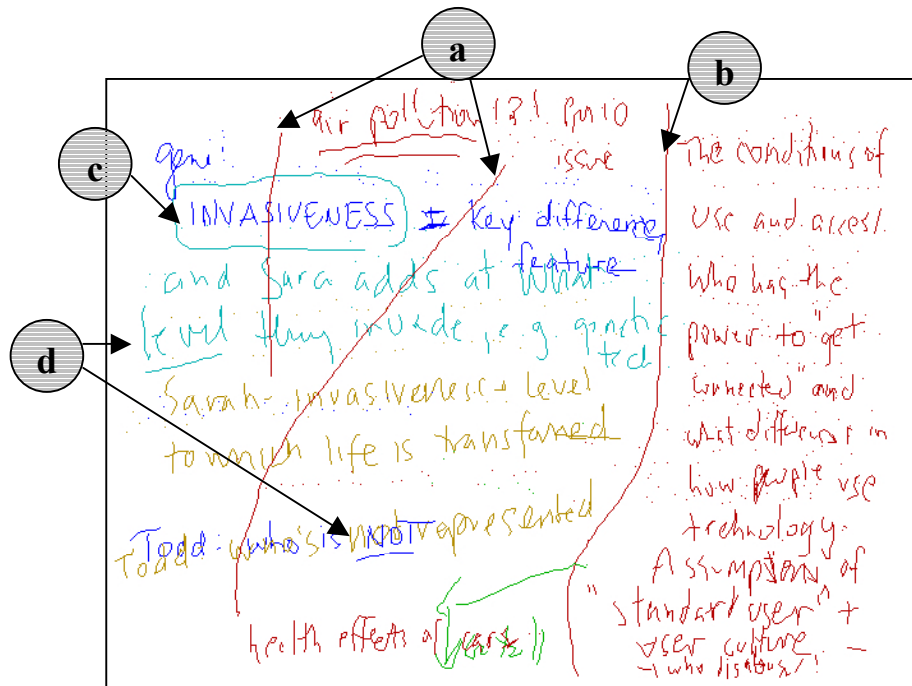 a
b
c
d
air pollution !?! Pm10
issue
geni:
INVASIVENESS = key difference,
feature
and Sara adds at what
level they invade, e.g. genetic
tech
Sarah - invasiveness + level
to which life is transformed
Todd - who's not represented
Todd - who is NOT
health effects of cars
The conditions of
use and access.
Who has the
power to "get
connected" and
what differences in
how people use
technology.
Assumptions of
"standard user" +
user culture -